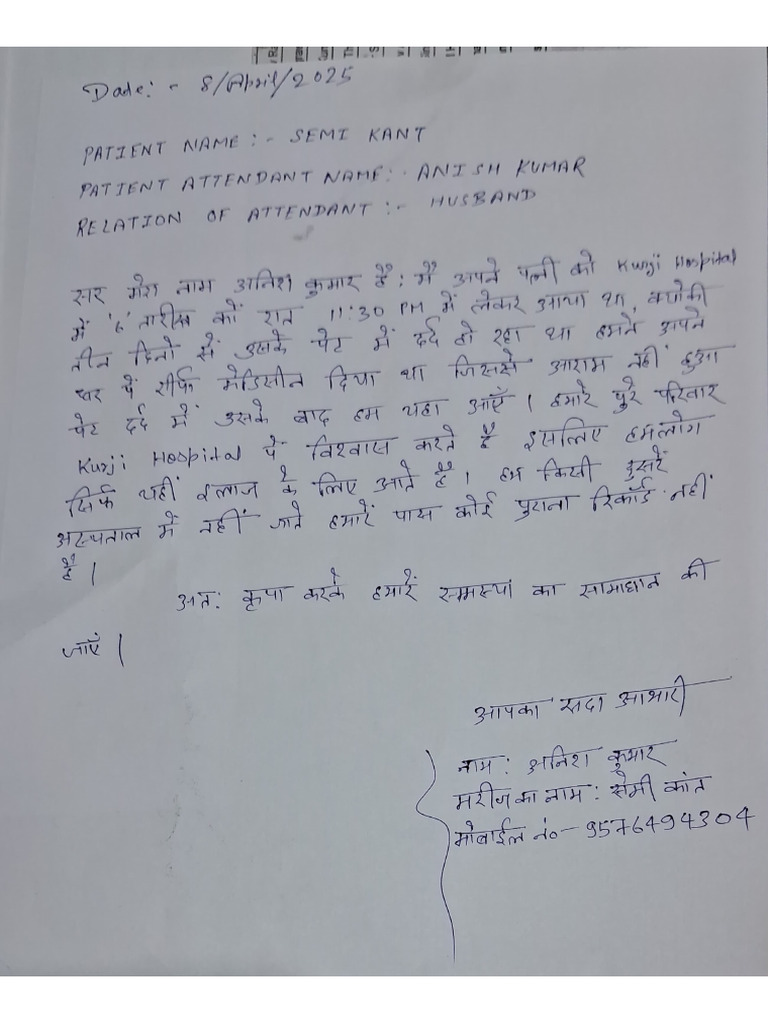 Date: - 8/April/2025
PATIENT NAME :- SEMI KANT
PATIENT ATTENDANT NAME:- ANISH KUMAR
RELATION OF ATTENDANT :- HUSBAND
सर मेरा नाम अनिश कुमार है। मैं अपने पत्नी को Kurji Hospital
में '6' तारीख को रात 11:30 PM में लेकर आया था, क्योकी
तीन दिनो से उसके पेट में दर्द हो रहा था हमने अपने
घर पे सीर्फ मेडिसीन दिया था जिससे आराम नहीं हुआ
पेट दर्द में उसके बाद हम यहा आएँ। हमारे पुरे परिवार
Kurji Hospital पे विश्वास करते है इसलिए हमलोग
सिर्फ यहीं ईलाज के लिए आते है। हम किसी दुसरें
अस्पताल में नहीं जाते हमारें पास कोई पुराना रिकॉर्ड नहीं
है।
अत: कृपा करके हमारें समस्या का सामाधान की
जाएँ।
आपका सदा आभारी
नाम: अनिश कुमार
मरीज का नाम: सेमी कांत
मोबाईल नं०- 9576494304